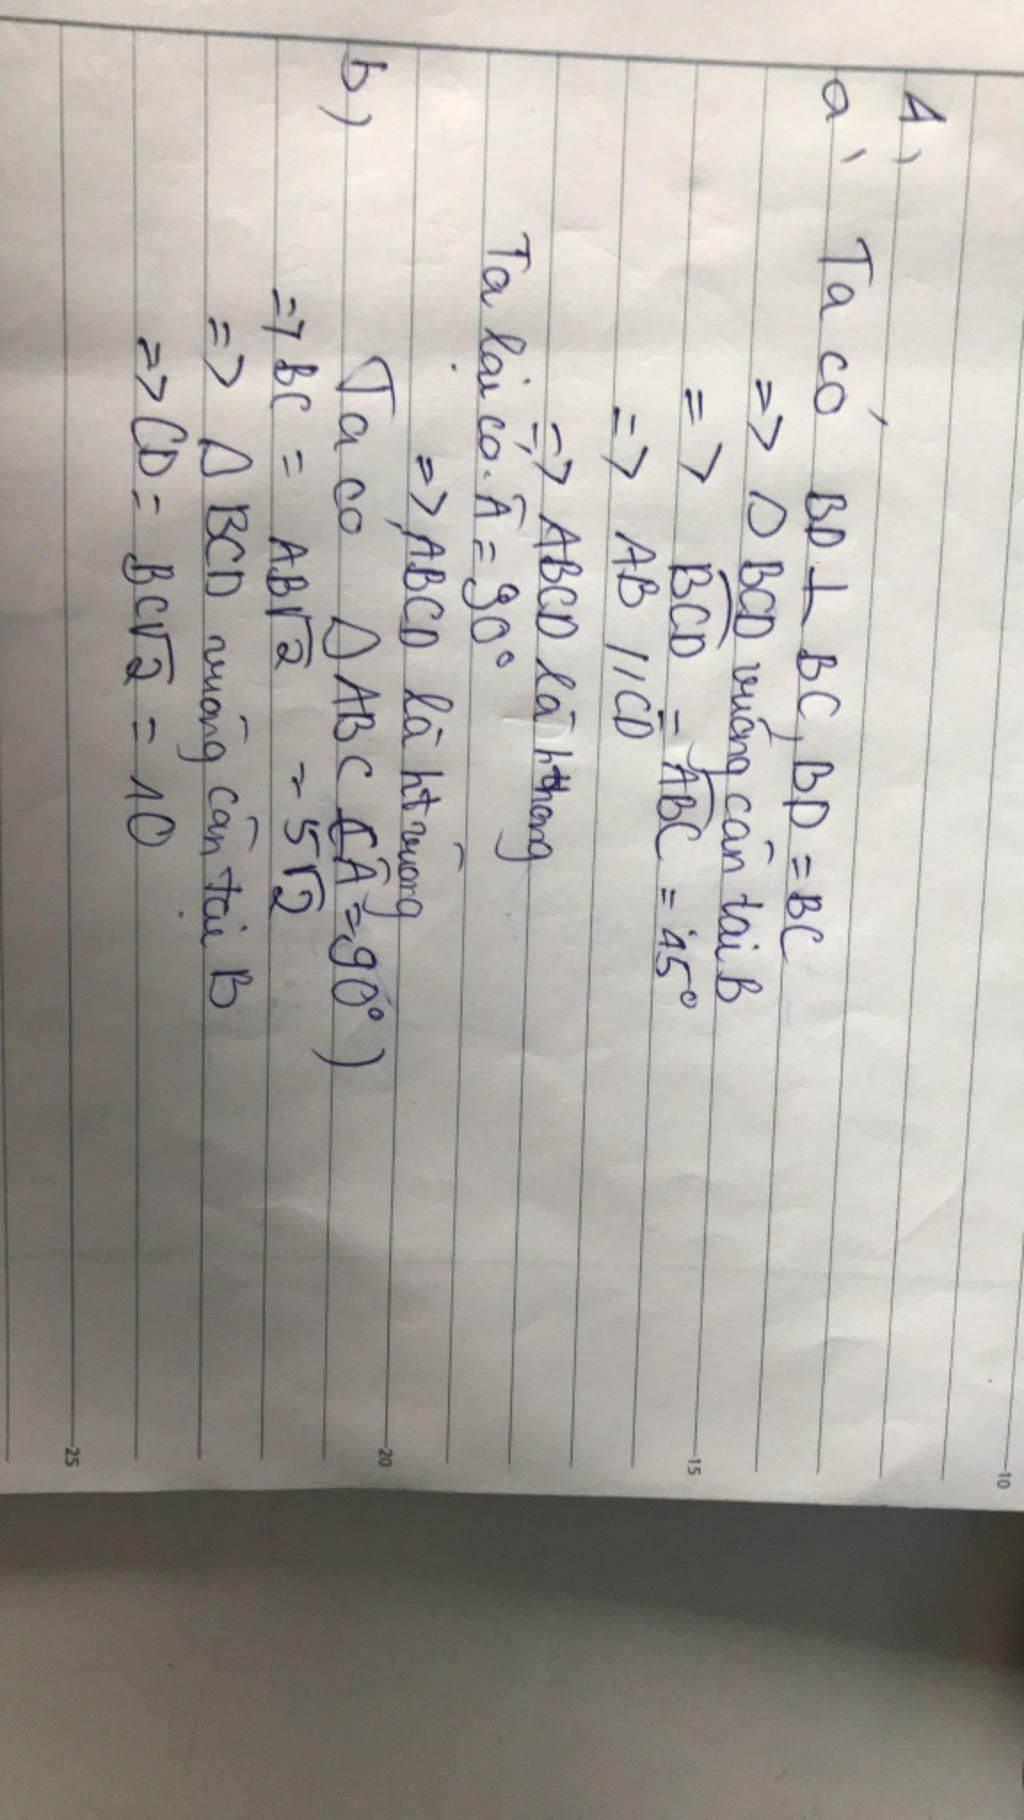 1,
a, Ta có BD ⊥ BC, BD = BC
=> Δ BCD vuông cân tại B
=> BCD = ABC = 45°
=> AB // CD
=> ABCD là hthang
Ta lại có Â = 90°
=> ABCD là ht vuông
b) Ta có Δ ABC (Â = 90°)
=> BC = AB√2 = 5√2
=> Δ BCD vuông cân tại B
=> CD = BC√2 = 10
10
15
20
25